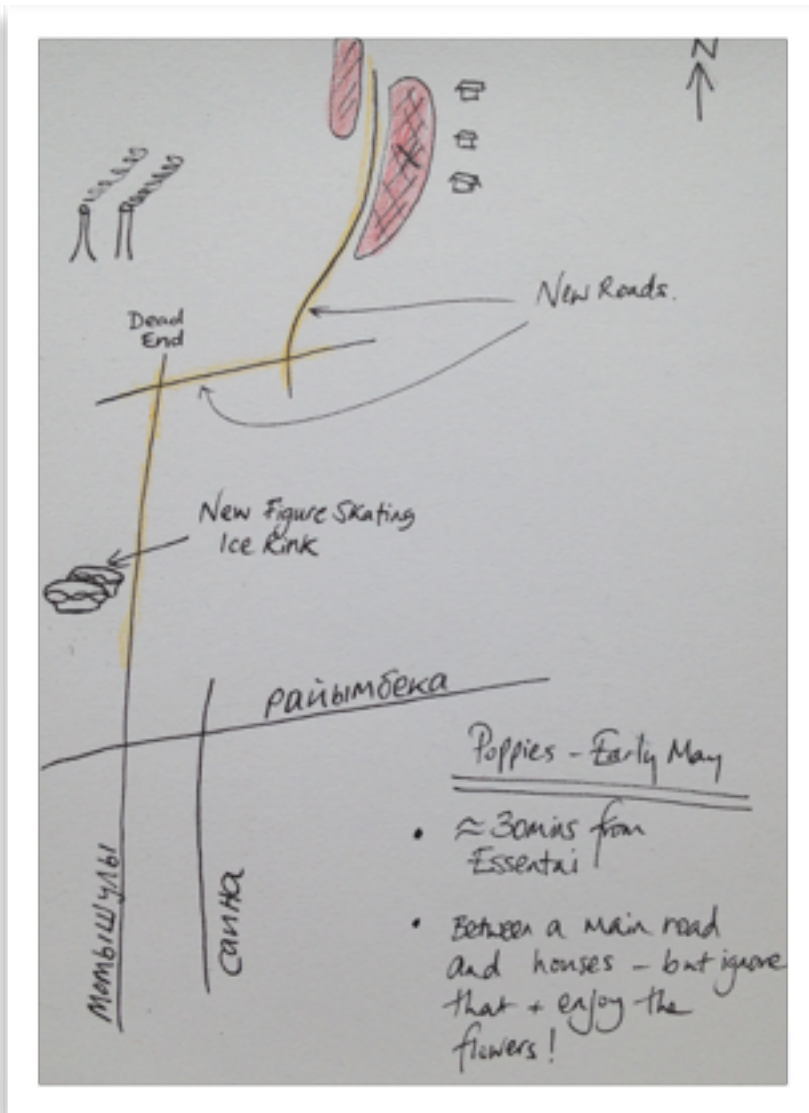 N
Dead
End
New Roads.
New Figure Skating
Ice Rink
РАЙЫМБЕКА
МОМЫШУЛЫ
САИНА
Poppies - Early May
• ≈ 30mins from
Essentai
• Between a main road
and houses - but ignore
that + enjoy the
flowers!